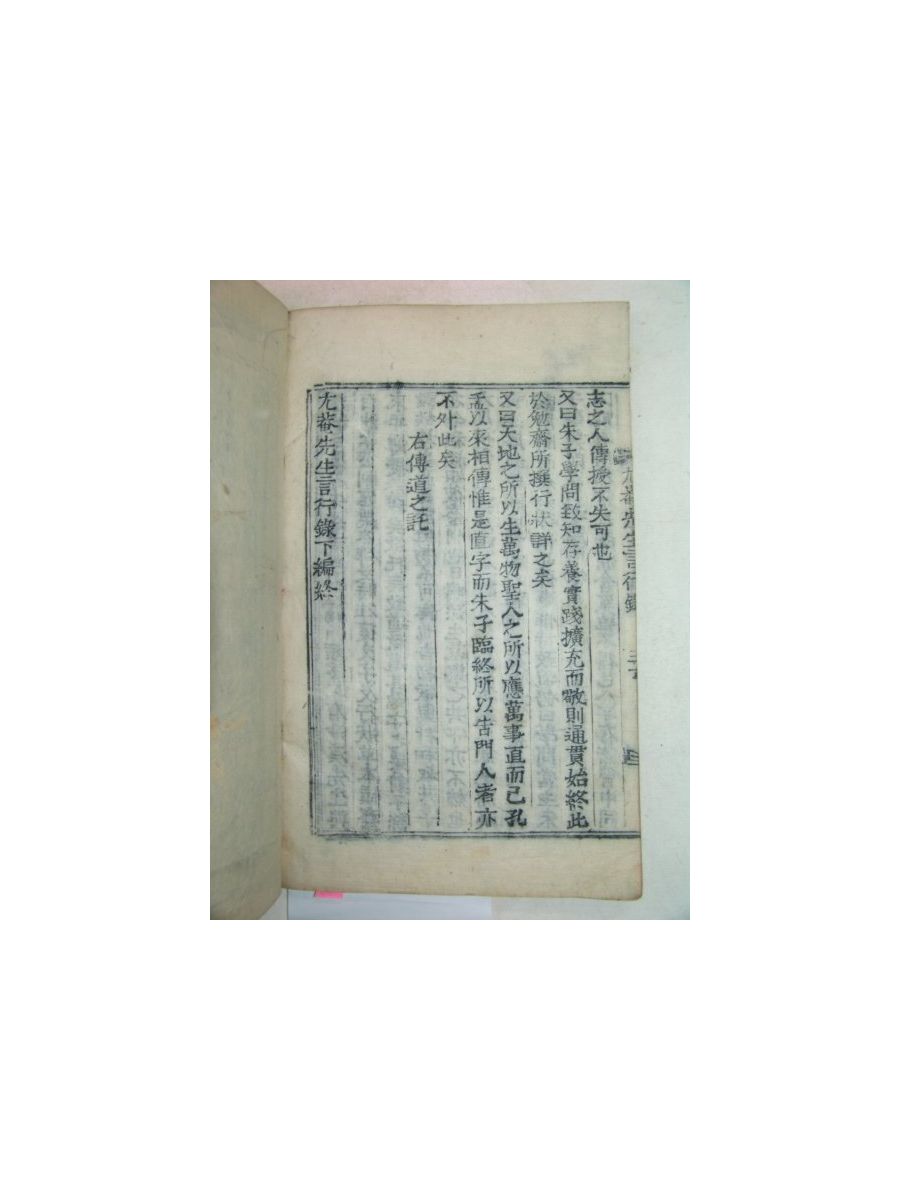 尤菴先生言行錄
志之人傳授不失可也
又曰朱子學問致知存養實踐擴充而敬則通貫始終此
於勉齋所撰行狀詳之矣
又曰天地之所以生萬物聖人之所以應萬事直而已孔
孟以來相傳惟是直字而朱子臨終所以告門人者亦
不外此矣
右傳道之託
尤菴先生言行錄下編終